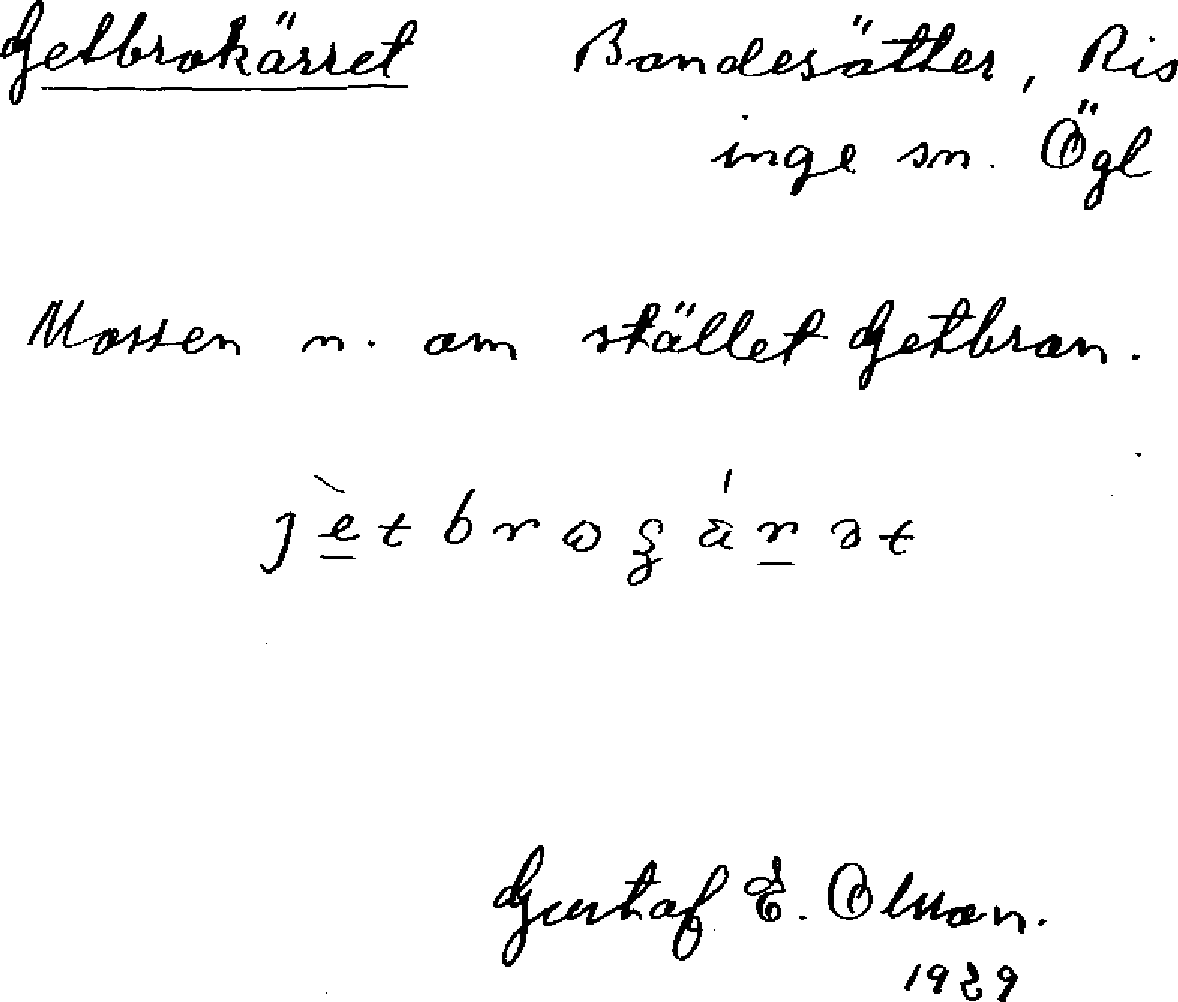 Getbrokärret Bondesätter, Ris
inge sn. Ögl
Mossen n. om stället Getbron.
Gustaf E. Olsson.
1929